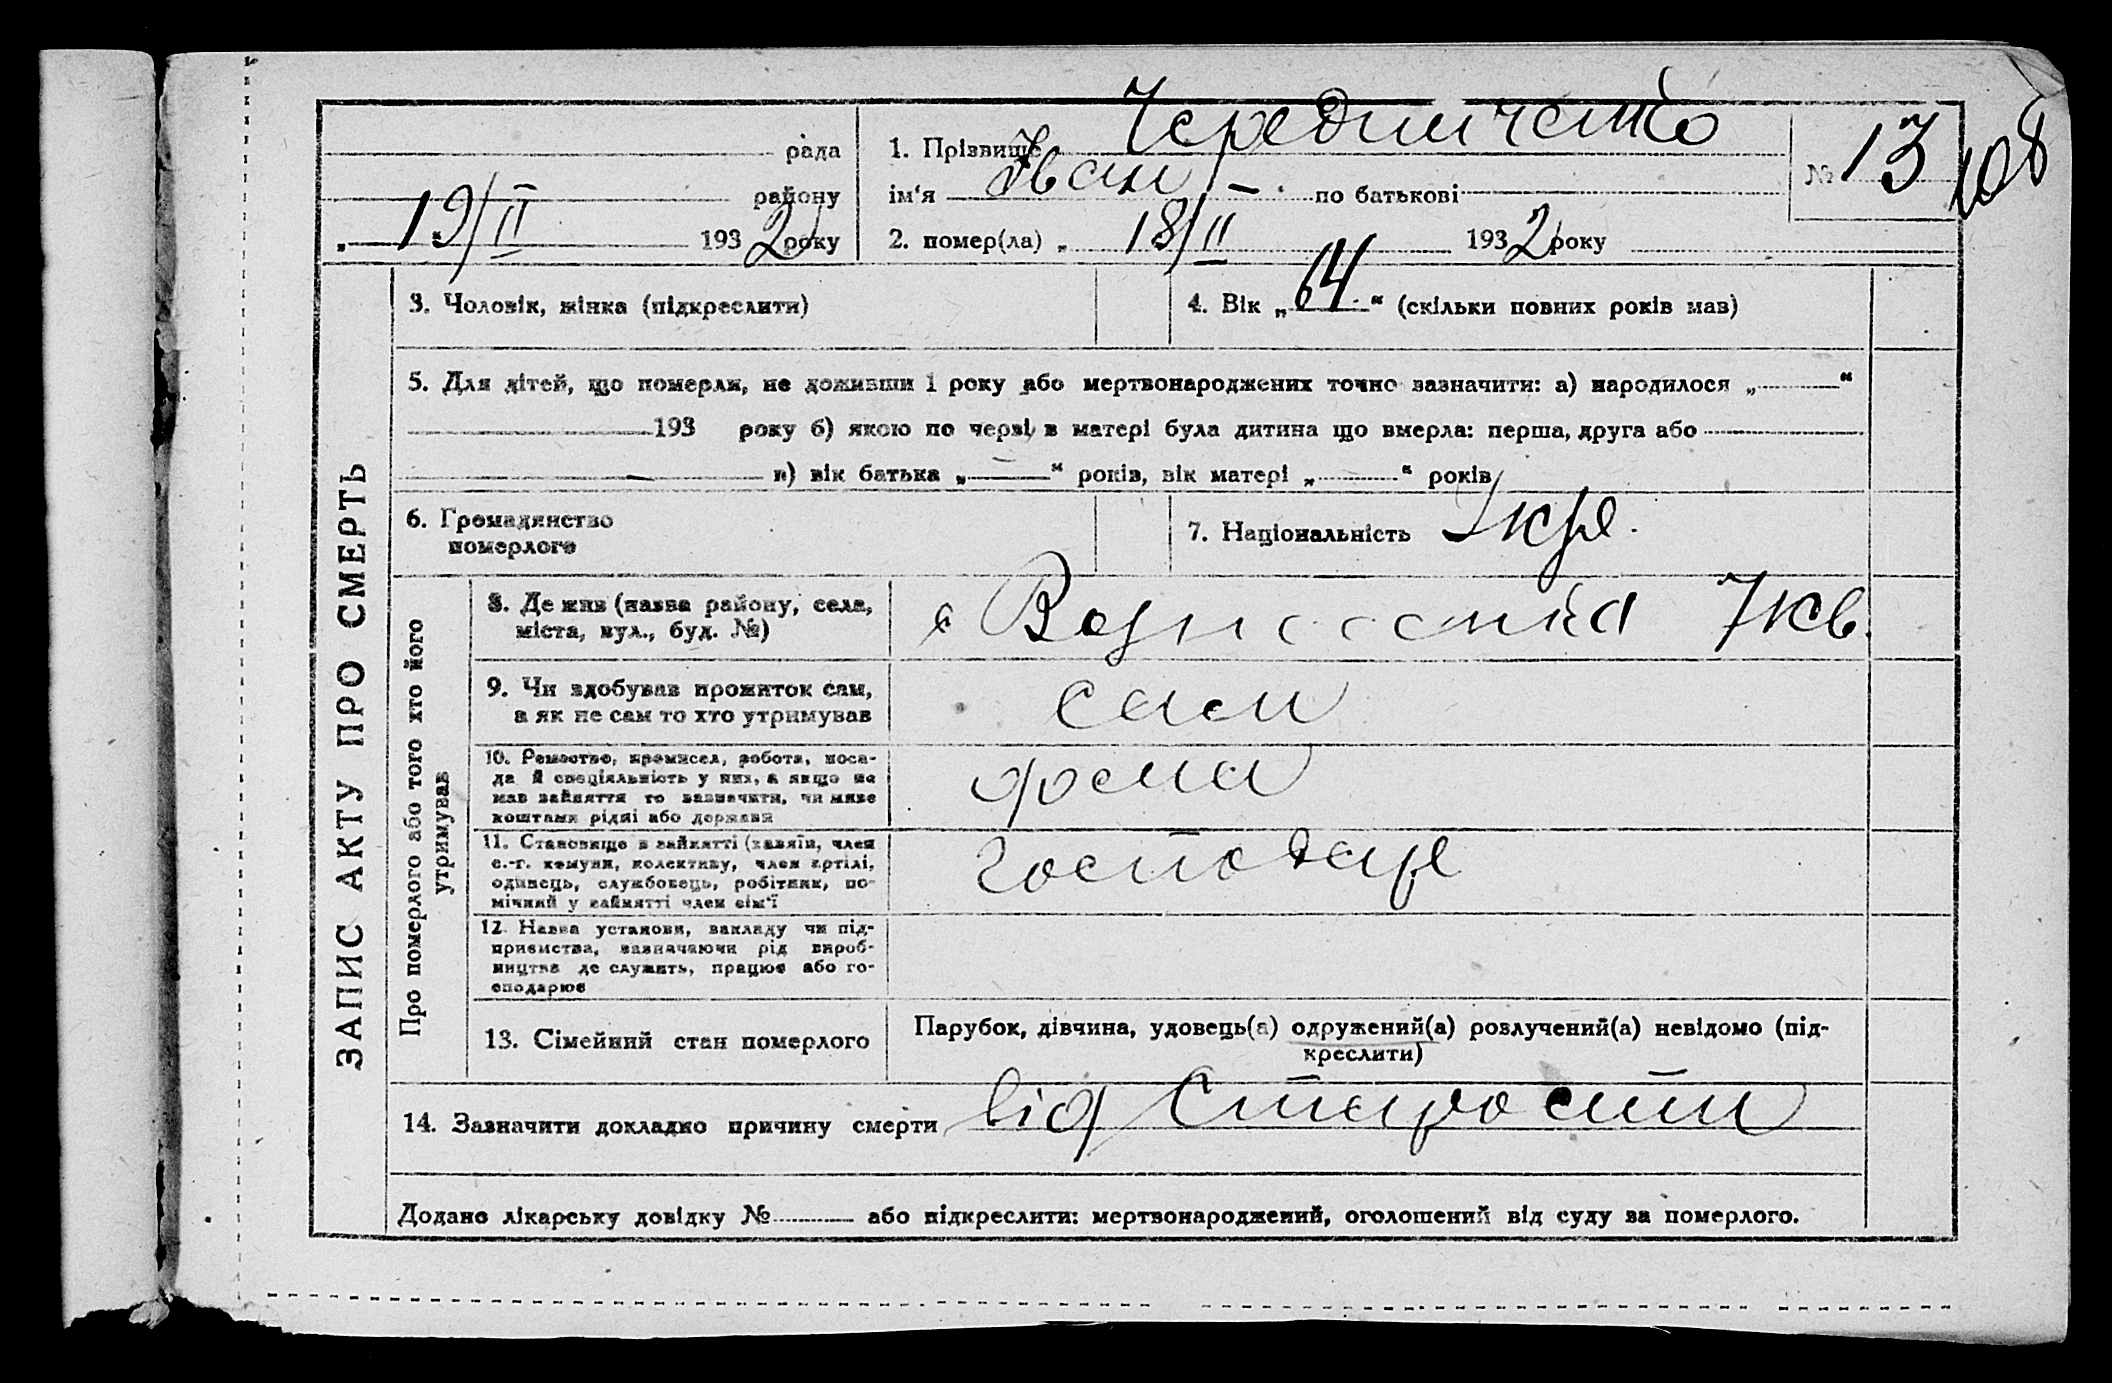 рада
району
„ 19/II 1932 року
1. Прізвище Чередниченко
ім'я Іван по батькові
2. помер(ла) „ 18/II 1932 року
№ 13
108
ЗАПИС АКТУ ПРО СМЕРТЬ
3. Чоловік, жінка (підкреслити)
4. Вік „64“ (скільки повних років мав)
5. Для дітей, що померли, не доживши 1 року або мертвонароджених точно зазначити: а) народилося „ “
193 року б) якою по черзі в матері була дитина що вмерла: перша, друга або
в) вік батька „ “ років, вік матері „ “ років
6. Громадянство
померлого
7. Національність Укр.
Про померлого або того хто його
утримував
8. Де жив (назва району, села,
міста, вул., буд. №)
с Вознесенка 7 кв.
9. Чи здобував прожиток сам,
а як не сам то хто утримував
сам
10. Ремество, промисел, робота, поса-
да й спеціяльність у них, а якщо не
мав зайняття то зазначити, чи живе
коштами рідні або держави
11. Становище в зайнятті (хазяїн, член
с.-г. комуни, колективу, член артілі,
одинець, службовець, робітник, по-
мічний у зайнятті член сім'ї
господар
12. Назва установи, закладу чи під-
приємства, зазначаючи рід вироб-
ництва де служить, працює або го-
сподарює
13. Сімейний стан померлого
Парубок, дівчина, удовець(а) одружений(а) розлучений(а) невідомо (під-
креслити)
14. Зазначити докладно причину смерти від старости
Додано лікарську довідку № або підкреслити: мертвонароджений, оголошений від суду за померлого.